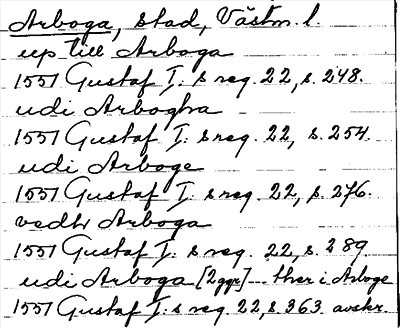 Arboga, stad, Västm. l.
up till Arboga
1551 Gustaf I:s reg. 22, s. 248.
udi Arbogha
1551 Gustaf I:s reg. 22, s. 254.
udi Arboge
1551 Gustaf I:s reg. 22, s. 276.
vedh Arboga
1551 Gustaf I:s reg. 22, s. 289
udi Arboga [2ggr] -- ther i Arboge
1551 Gustaf I:s reg. 22, s. 363. avskr.